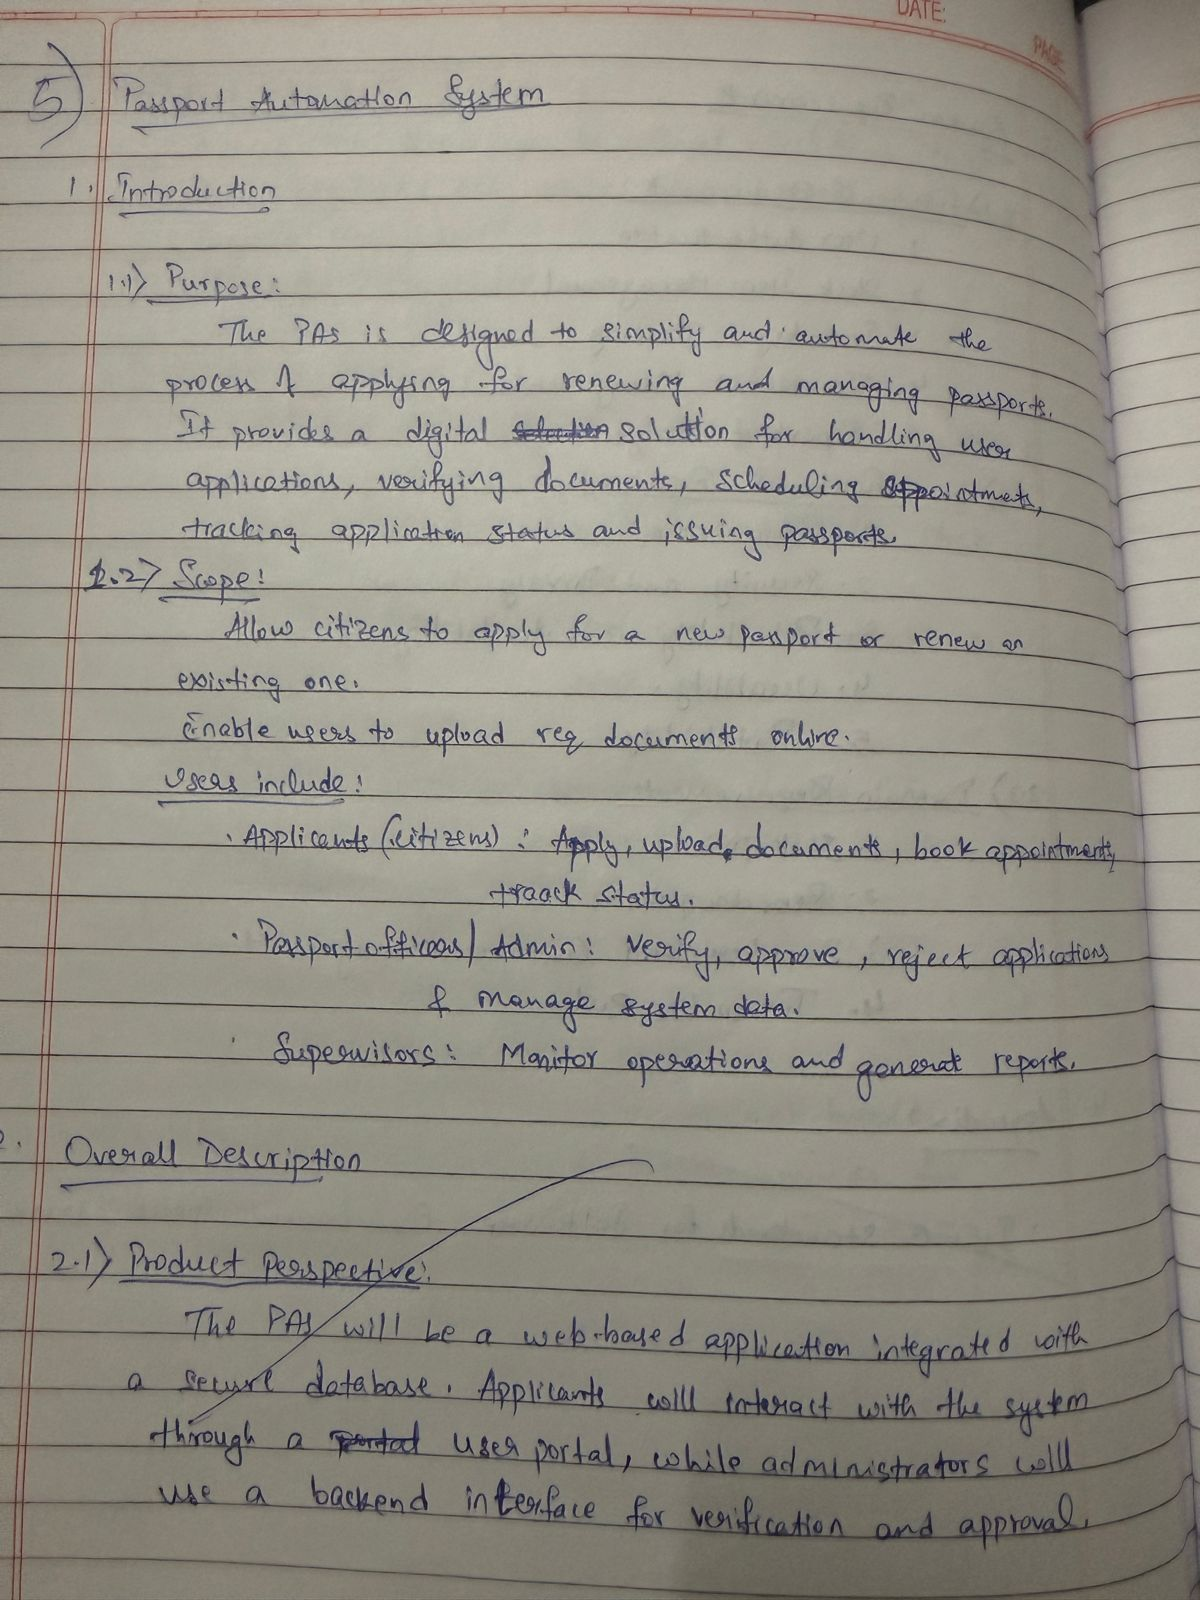 DATE:
PAGE
5) Passport Automation System
1. Introduction
1.1) Purpose:
The PAS is designed to simplify and automate the
process of applying for renewing and managing passports.
It provides a digital solution for handling user
applications, verifying documents, scheduling appointments,
tracking application status and issuing passports.
1.2) Scope:
Allow citizens to apply for a new passport or renew an
existing one.
Enable users to upload req documents online.
Users include:
· Applicants (citizens) : Apply, upload documents, book appointments,
traack status.
· Passport officers / Admin: Verify, approve, reject applications
& manage system data.
· Supervisors: Monitor operations and generate reports.
2. Overall Description
2.1) Product Perspective:
The PAS will be a web-based application integrated with
a secure database. Applicants will interact with the system
through a user portal, while administrators will
use a backend interface for verification and approval.